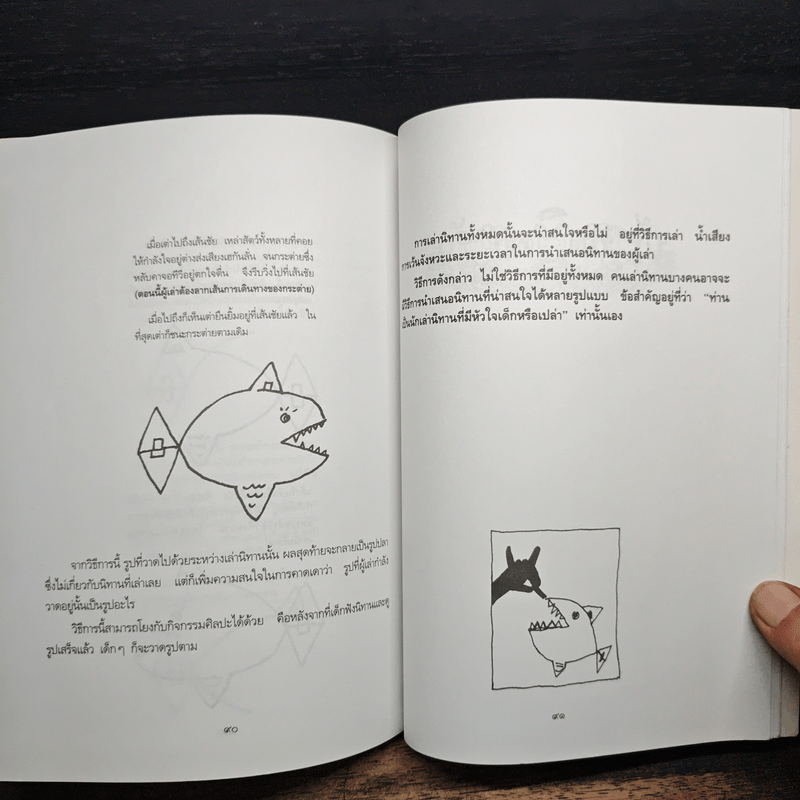 เมื่อเต่าไปถึงเส้นชัย เหล่าสัตว์ทั้งหลายที่คอย
ให้กำลังใจอยู่ต่างส่งเสียงเฮกันลั่น จนกระต่ายซึ่ง
หลับคาจอทีวีอยู่ตกใจตื่น จึงรีบวิ่งไปที่เส้นชัย
(ตอนนี้ผู้เล่าต้องลากเส้นการเดินทางของกระต่าย)
เมื่อไปถึงก็เห็นเต่ายืนยิ้มอยู่ที่เส้นชัยแล้ว ใน
ที่สุดเต่าก็ชนะกระต่ายตามเดิม
จากวิธีการนี้ รูปที่วาดไปด้วยระหว่างเล่านิทานนั้น ผลสุดท้ายจะกลายเป็นรูปปลา
ซึ่งไม่เกี่ยวกับนิทานที่เล่าเลย แต่ก็เพิ่มความสนใจในการคาดเดาว่า รูปที่ผู้เล่ากำลัง
วาดอยู่นั้นเป็นรูปอะไร
วิธีการนี้สามารถโยงกับกิจกรรมศิลปะได้ด้วย คือหลังจากที่เด็กฟังนิทานและดู
รูปเสร็จแล้ว เด็กๆ ก็จะวาดรูปตาม
๙๐
การเล่านิทานทั้งหมดนั้นจะน่าสนใจหรือไม่ อยู่ที่วิธีการเล่า น้ำเสียง
การเว้นจังหวะและระยะเวลาในการนำเสนอนิทานของผู้เล่า
วิธีการดังกล่าว ไม่ใช่วิธีการที่มีอยู่ทั้งหมด คนเล่านิทานบางคนอาจจะ
มีวิธีการนำเสนอนิทานที่น่าสนใจได้หลายรูปแบบ ข้อสำคัญอยู่ที่ว่า “ท่าน
เป็นนักเล่านิทานที่มีหัวใจเด็กหรือเปล่า” เท่านั้นเอง
๙๑